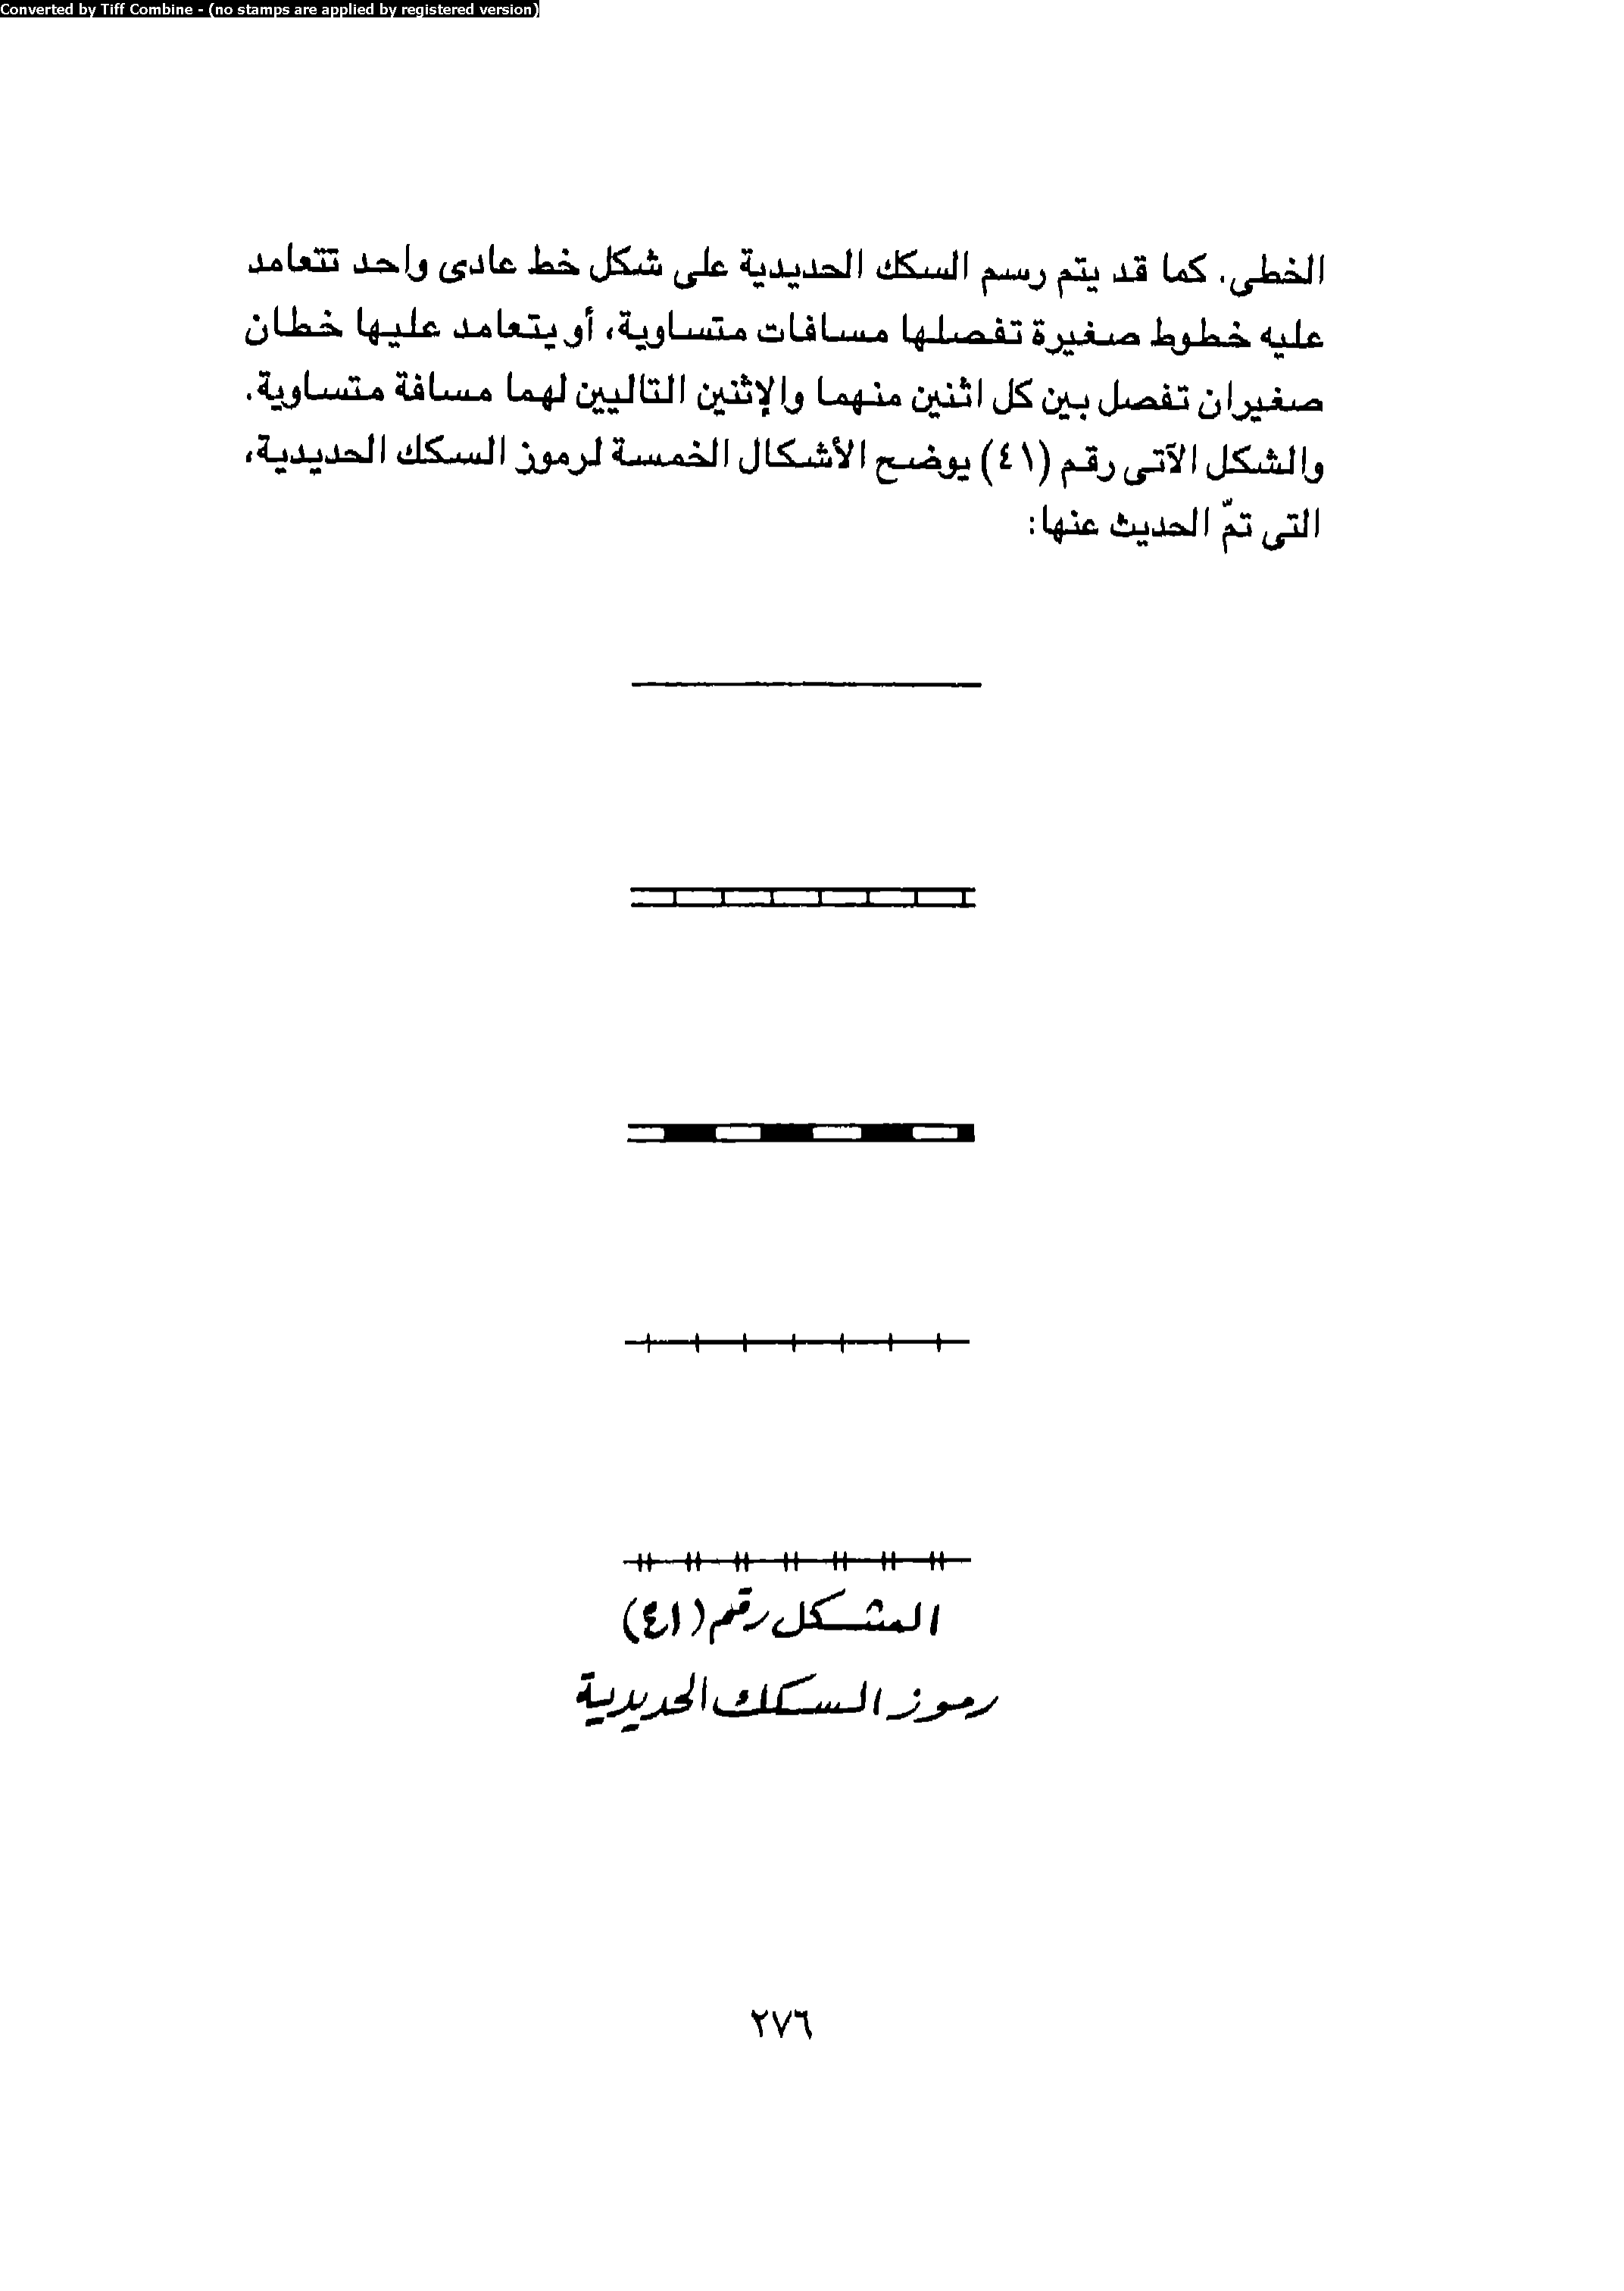 Converted by Tiff Combine - (no stamps are applied by registered version)
الخطى. كما قد يتم رسم السكك الحديدية على شكل خط عادى واحد تتعامد
عليه خطوط صغيرة تفصلها مسافات متساوية، أو يتعامد عليها خطان
صغيران تفصل بين كل اثنين منهما والإثنين التاليين لهما مسافة متساوية.
والشكل الآتى رقم (٤١) يوضح الأشكال الخمسة لرموز السكك الحديدية،
التى تمّ الحديث عنها:
الشكل رقم (٤١)
رموز السكك الحديدية
٢٧٦